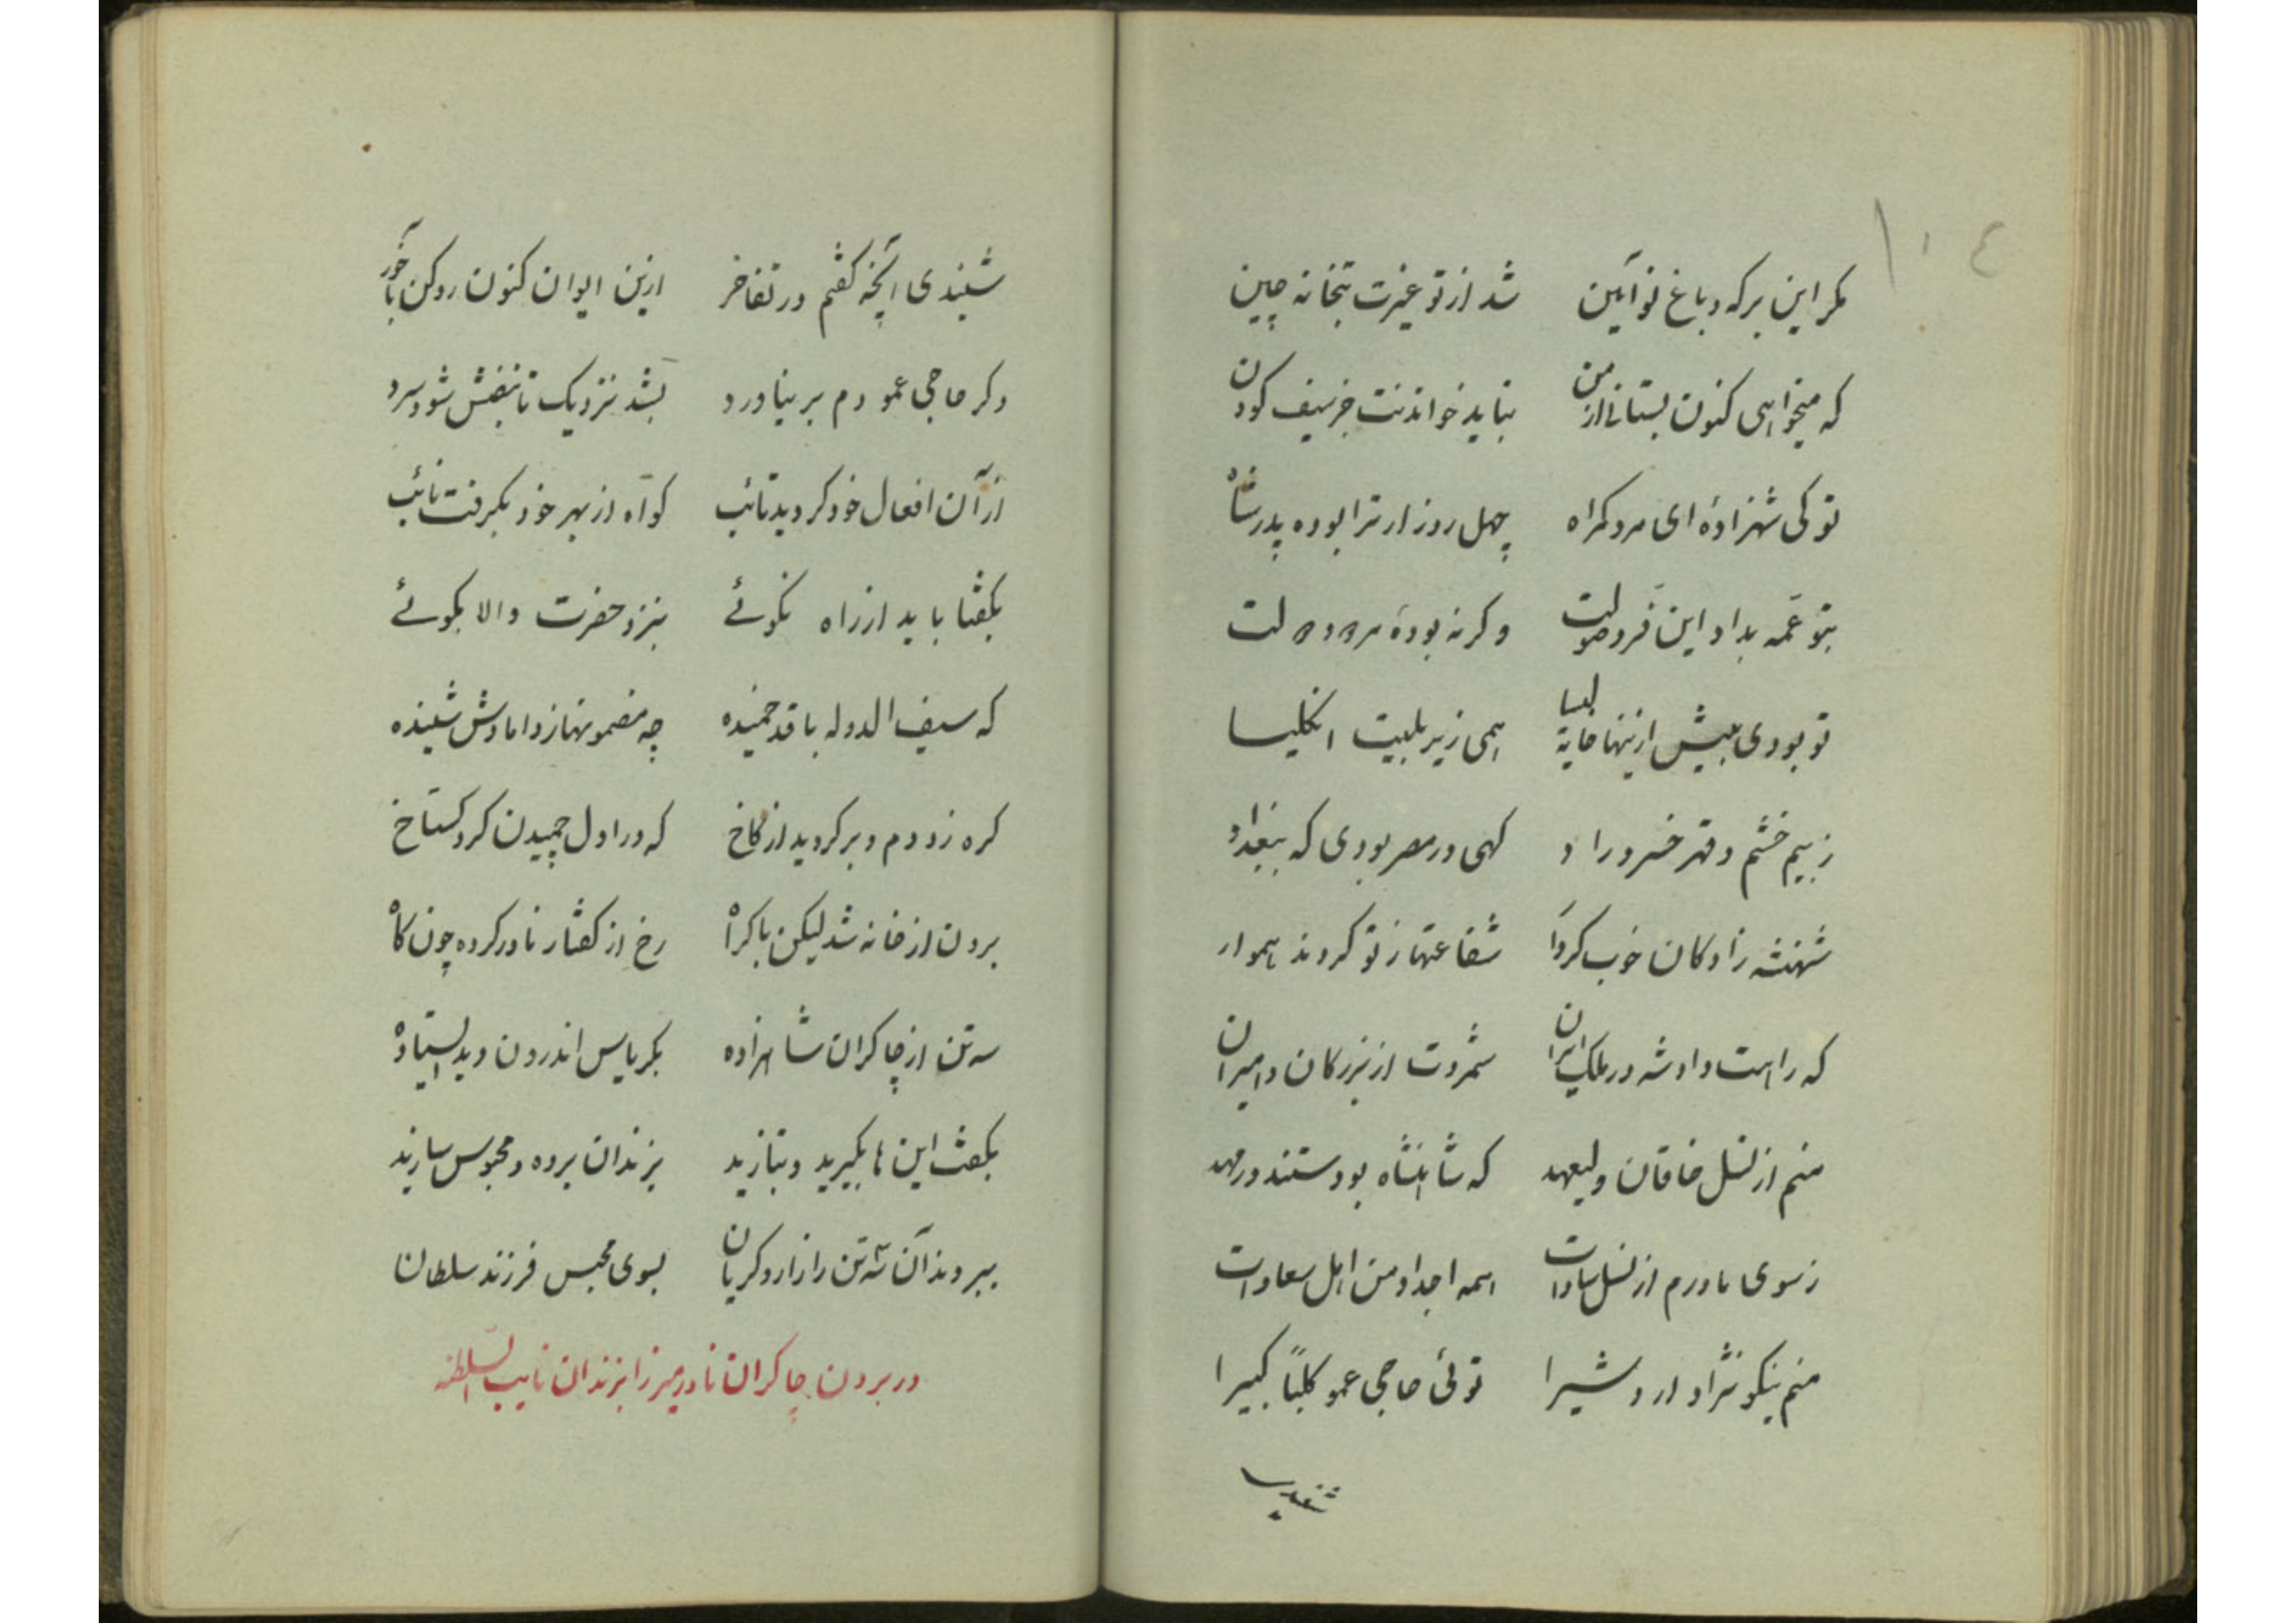 ١٠٤
مکر این برکه و باغ نو آئین شد از تو غیرت بتخانه چین
که میخواهی کنون بستانی از من نباید خواندنت جز سیف کودن
تو کی شهزادهٔ ای مرد کمراه چهل روز ار ترا بوده پدر شاه
بتو عمه بداد این فر و صولت وکرنه بودهٔ مرد
تو بودی پیش ازینها همی زیر بلیت انکلیسا
ز بیم خشم و قهر خسرو راد کهی در مصر بودی که ببغداد
شهنشه زادکان خوب کردار شفاعتها ز تو کردند هموار
که راهت داد شه در ملک ایران شمردت از بزرکان و امیران
منم از نسل خاقان ولیعهد که شاهنشاه بودستند در مهد
ز سوی مادرم از نسل سادات همه اجداد من اهل سعادات
منم نیکو نژاد اردشیرا توئی حاجی عمو کلبًا کبیرا
شنیدی
شنیدی آنچه کفتم در تفاخر ازین ایوان کنون رو کن بآخور
دکر حاجی عمو دم بر نیاورد بشد نزدیک تا نبضش شود سرد
از آن افعال خود کردید تائب کواه از بهر خود بکرفت نائب
بکفتا باید از راه نکوئے بنزد حضرت والا بکوئے
که سیف الدوله با قد خمیده چه مضمونها ز دامادش شنیده
کره زد دم و بر کردید از کاخ که در اول چمیدن کرد کستاخ
برون از خانه شد لیکن باکراه رخ از کفتار نادر کرده چون کاه
سه تن از چاکران شاهزاده بکریاس اندرون دید ایستاده
بکفت این ها بکیرید و بتازید بزندان برده و محبوس سازید
ببردند آن سه تن را زار و کریان بسوی محبس فرزند سلطان
در بردن چاکران نادر میرزا بزندان نایب السلطنه